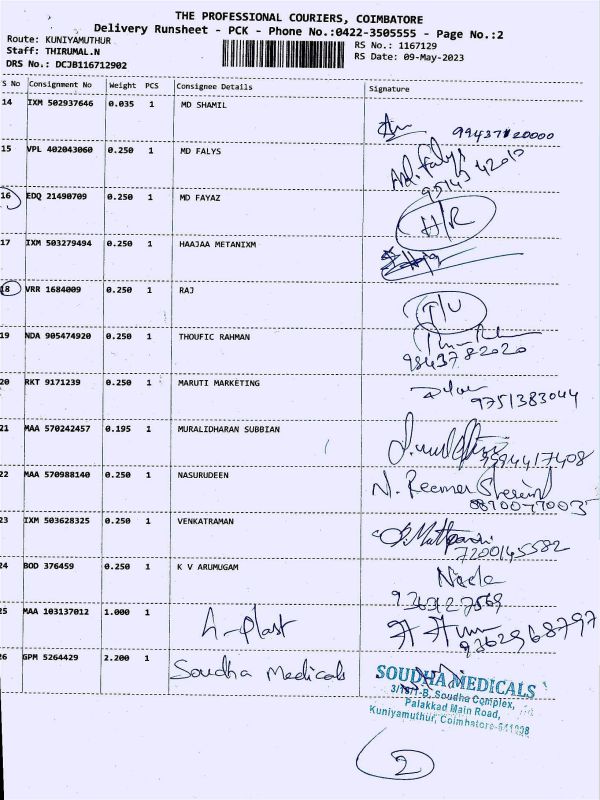 THE PROFESSIONAL COURIERS, COIMBATORE
Delivery Runsheet - PCK - Phone No.:0422-3505555 - Page No.:2
Route: KUNIYAMUTHUR
Staff: THIRUMAL.N
DRS No.: DCJB116712902
RS No.: 1167129
RS Date: 09-May-2023
S No Consignment No Weight PCS Consignee Details Signature
14 IXM 502937646 0.035 1 MD SHAMIL
15 VPL 402043060 0.250 1 MD FALYS
16 EDQ 21490709 0.250 1 MD FAYAZ H/R
17 IXM 503279494 0.250 1 HAAJAA METANIXM
18 VRR 1684009 0.250 1 RAJ
19 NDA 905474920 0.250 1 THOUFIC RAHMAN
9843782020
20 RKT 9171239 0.250 1 MARUTI MARKETING
9751383044
21 MAA 570242457 0.195 1 MURALIDHARAN SUBBIAN
9994417408
22 MAA 570988140 0.250 1 NASURUDEEN
23 IXM 503628325 0.250 1 VENKATRAMAN
7200145582
24 BOD 376459 0.250 1 K V ARUMUGAM
25 MAA 103137012 1.000 1 A-plast
9362968797
26 GPM 5264429 2.200 1 Soudha Medicals
SOUDHA MEDICALS
Soudha Complex,
Palakkad Main Road,
Kuniyamuthur, Coimbatore-641008
2